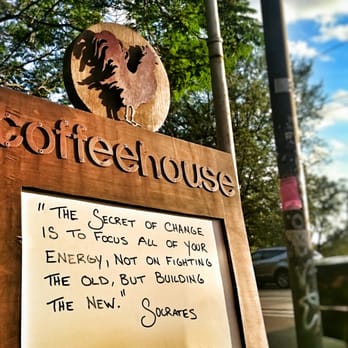 coffeehouse
"THE SECRET OF CHANGE
IS TO FOCUS ALL OF YOUR
ENERGY, NOT ON FIGHTING
THE OLD, BUT BUILDING
THE NEW." SOCRATES